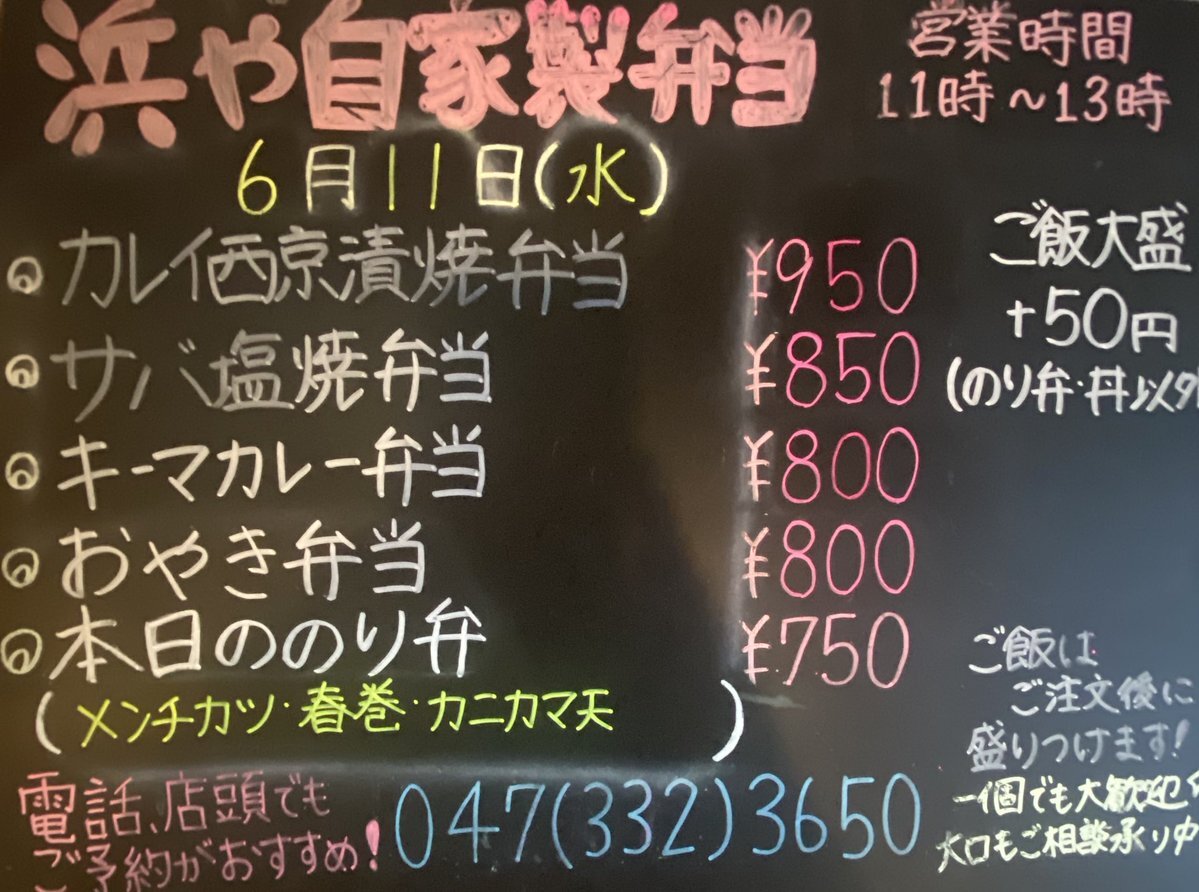 浜や自家製弁当
営業時間
11時~13時
6月11日(水)
カレイ西京漬焼弁当 ¥950
サバ塩焼弁当 ¥850
キーマカレー弁当 ¥800
おやき弁当 ¥800
本日ののり弁 ¥750
(メンチカツ・春巻・カニカマ天)
ご飯大盛
+50円
(のり弁・丼以外
ご飯は
ご注文後に
盛りつけます!
一個でも大歓迎
大口もご相談承り中
電話、店頭でも
ご予約がおすすめ!
047(332)3650